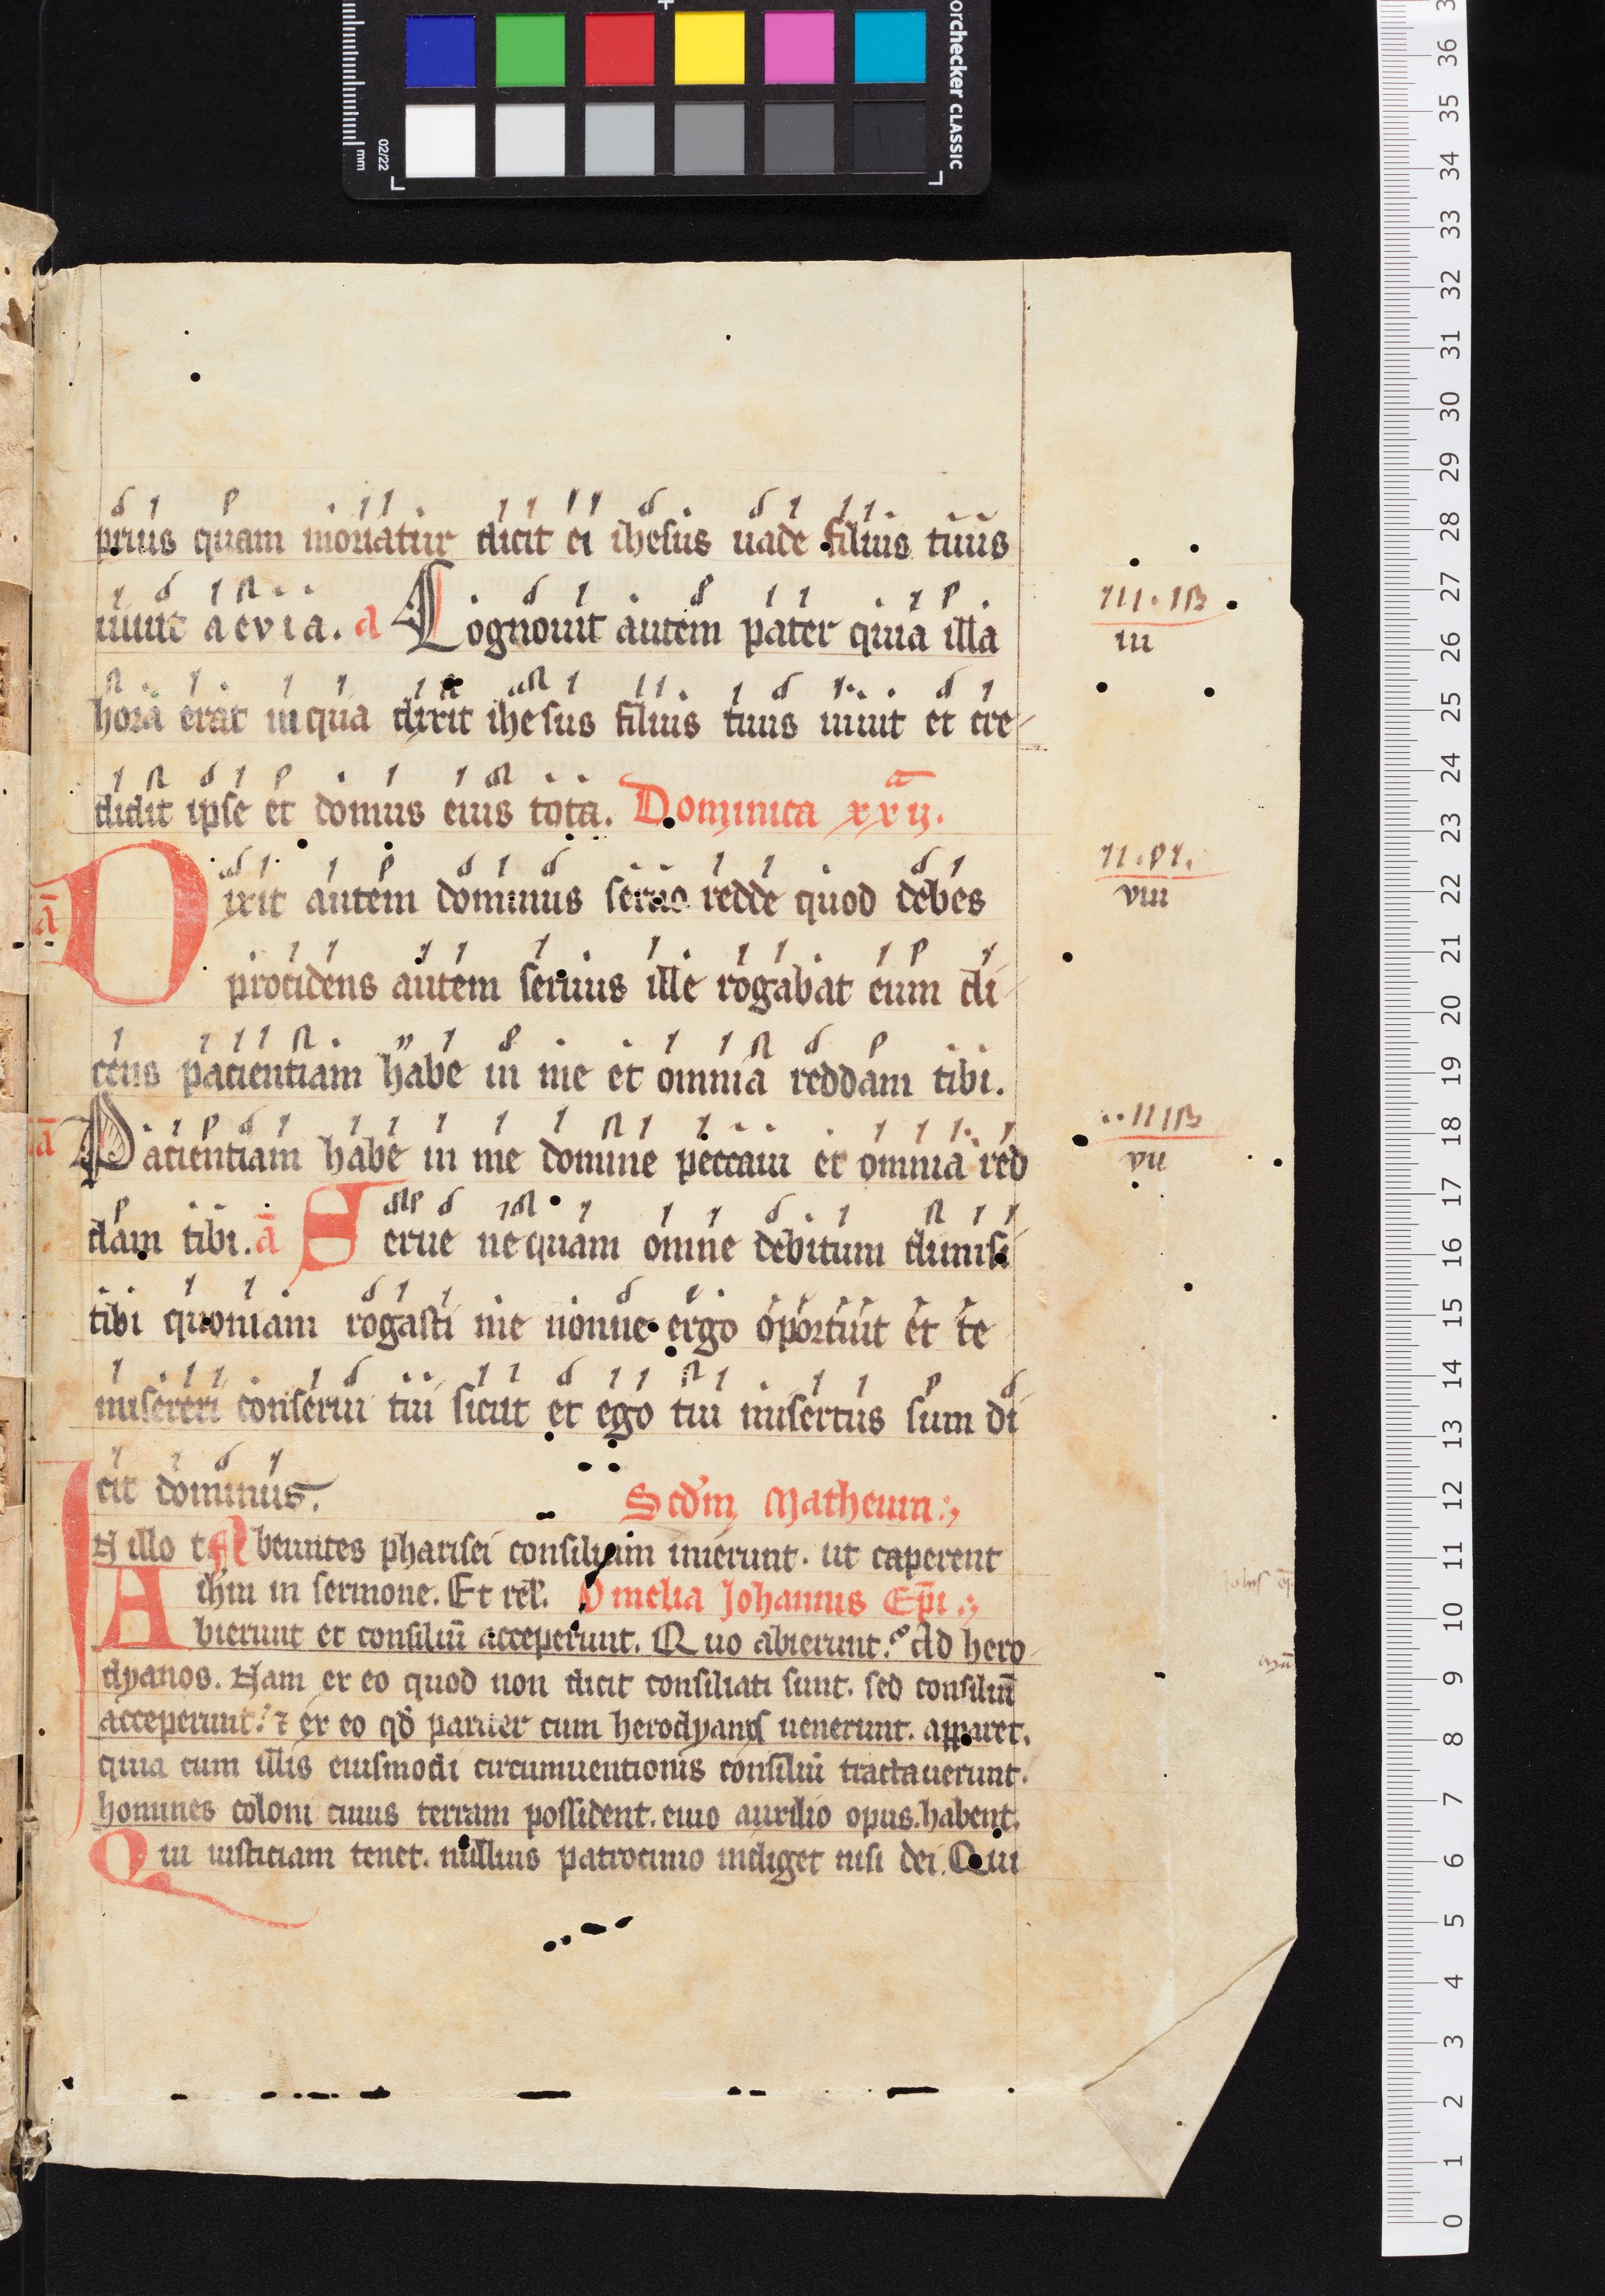 orchecker CLASSIC
02/22
mm
prius quam moriatur dicit ei ihesus uade filius tuus
uiuit aevia. a Cognouit autem pater quia illa
hora erat in qua dixit ihesus filius tuus uiuit et cre
didit ipse et domus eius tota. Dominica xxij.a
ā Dixit autem dominus seruo redde quod debes
procidens autem seruus ille rogabat eum di
cens pacientiam habe in me et omnia reddam tibi.
ā Pacientiam habe in me domine peccaui et omnia red
dam tibi. ā Serue nequam omne debitum dimisi
tibi quoniam rogasti me nonne ergo oportuit et te
misereri conserui tui sicut et ego tui misertus sum di
cit dominus. Scdm Matheum:,
In illo t Abeuntes pharisei consilium inierunt. ut caperent
ihm in sermone. Et rel. Omelia Johannis Ep̄i.:,
Abierunt et consiliū acceperunt. Quo abierunt? Ad hero
dyanos. Nam ex eo quod non dicit consiliati sunt. sed consiliū
acceperunt: ⁊ ex eo qđ pariter cum herodyanis uenerunt. apparet.
quia cum illis eiusmodi circumuentionis consiliū tractauerunt.
homines coloni cuius terram possident. eiuo auxilio opus habent.
Qui iusticiam tenet. nullius patrocinio indiget nisi dei. Qui
iii
viii
vii
36
35
34
33
32
31
30
29
28
27
26
25
24
23
22
21
20
19
18
17
16
15
14
13
12
11
10
9
8
7
6
5
4
3
2
1
0